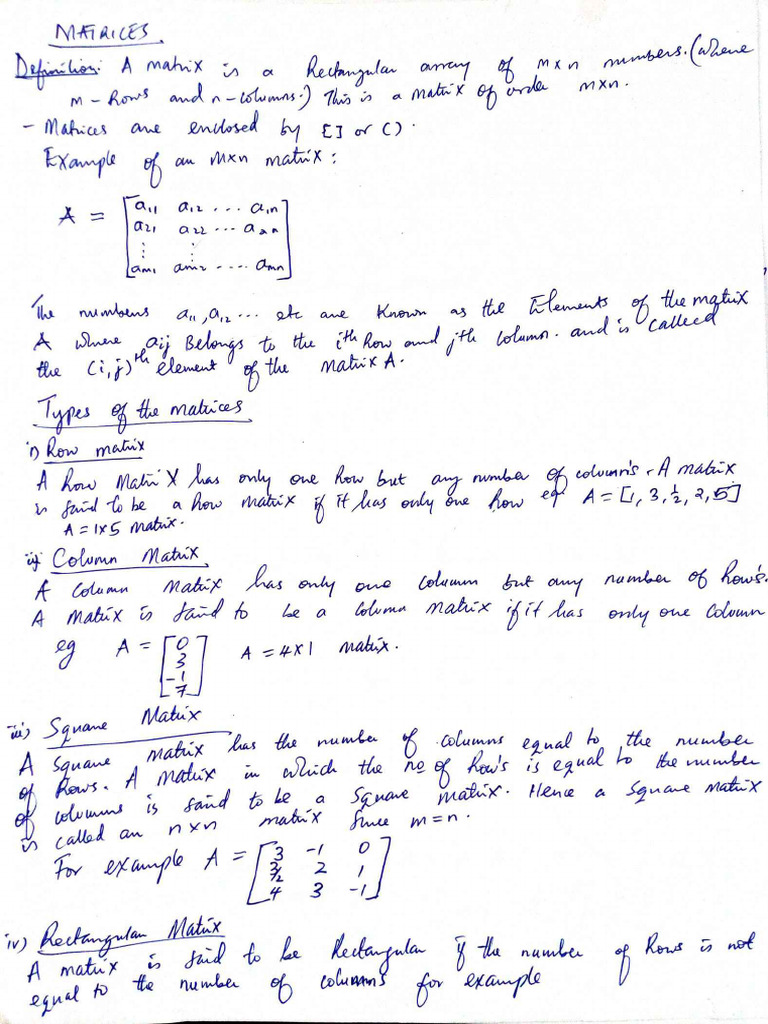 MATRICES.
Definition: A matrix is a Rectangular array of m×n numbers. (where
m-Rows and n-columns.) This is a matrix of order m×n.
- Matrices are enclosed by [ ] or ( ).
Example of an m×n matrix:
A = [a11 a12 ... a1n
a21 a22 ... a2n
⋮ ⋮
am1 am2 .... amn]
The numbers a11, a12 ... etc are known as the Elements of the matrix
A where aij Belongs to the ith Row and jth column. and is called
the (i,j)th element of the matrix A.
Types of the matrices
i) Row matrix
A Row Matrix has only one Row but any number of columns. A matrix
is said to be a Row matrix if it has only one Row eg A = [1, 3, 1/2, 2, 5]
A = 1×5 matrix.
ii) Column Matrix.
A column matrix has only one column but any number of Row's.
A matrix is said to be a column matrix if it has only one column
eg A = [0
3
-1
7] A = 4×1 matrix.
iii) Square Matrix
A square matrix has the number of columns equal to the number
of Rows. A matrix in which the no of Row's is equal to the number
of columns is said to be a square matrix. Hence a square matrix
is called an n×n matrix since m=n.
For example A = [3 -1 0
3/2 2 1
4 3 -1]
iv) Rectangular Matrix
A matrix is said to be Rectangular if the number of Rows is not
equal to the number of columns for example